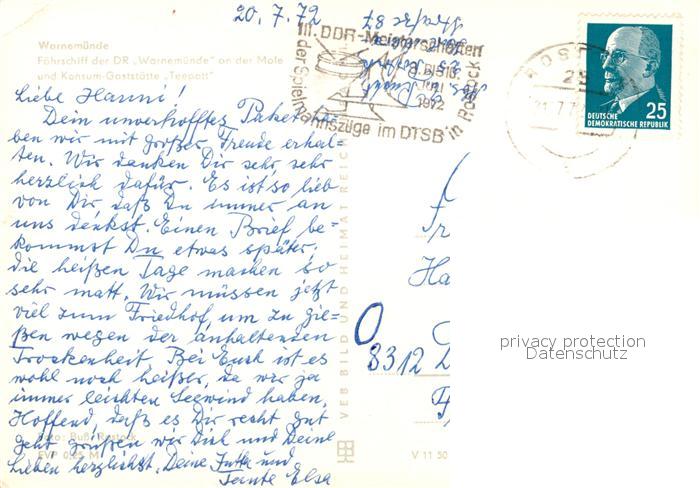 20.7.72
Warnemünde
Fährschiff der DR „Warnemünde" an der Mole
und Konsum-Gaststätte „Teepott"
Liebe Hanni!
Dein unverhofftes Paket ha-
ben wir mit großer Freude erhal-
ten. Wir danken Dir sehr sehr
herzlich dafür. Es ist so lieb
von Dir daß Du immer an
uns denkst. Einen Brief be-
kommst Du etwas später,
die heißen Tage machen so
sehr matt. Wir müssen jetzt
viel zum Friedhof um zu gie-
ßen wegen der anhaltenden
Trockenheit. Bei Euch ist es
wohl noch heißer, da wir ja
immer leichten Seewind haben.
Hoffend, daß es Dir recht gut
geht grüßen wir Dich und Deine
Lieben herzlichst. Deine Jutta und
Tante Elsa
Foto: Buß, Rostock
EVP 0,25 M
VEB BILD UND HEIMAT REICH
V 11 50
III. DDR-Meisterschaften
der Spielmannszüge im DTSB in Rostock
8. BIS 10.
JULI
1972
ROST
25
21.7.7
25
DEUTSCHE
DEMOKRATISCHE REPUBLIK
Fr
Ha
O
8312
privacy protection
Datenschutz